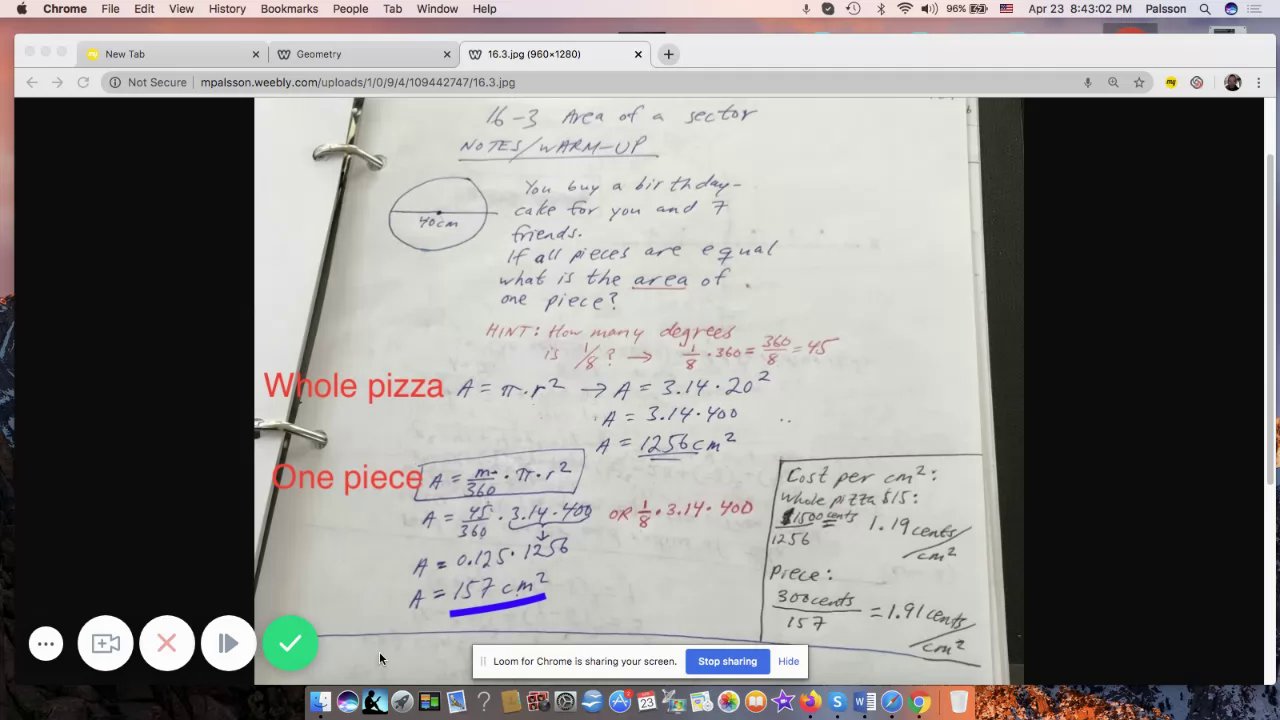 Chrome File Edit View History Bookmarks People Tab Window Help 96% Apr 23 8:43:02 PM Palsson
New Tab Geometry 16.3.jpg (960×1280)
Not Secure mpalsson.weebly.com/uploads/1/0/9/4/109442747/16.3.jpg
16-3 Area of a sector
NOTES/WARM-UP
40cm
You buy a birthday-
cake for you and 7
friends.
If all pieces are equal
what is the area of
one piece?
HINT: How many degrees
is 1/8? → 1/8 · 360 = 360/8 = 45
Whole pizza A = π·r² → A = 3.14·20²
A = 3.14·400
A = 1256cm²
One piece A = m/360 · π·r²
A = 45/360 · 3.14·400 OR 1/8 · 3.14 · 400
A = 0.125·1256
A = 157 cm²
Cost per cm²:
Whole pizza $15:
1500cents/1256 = 1.19cents/cm²
Piece:
300cents/157 = 1.91cents/cm²
Loom for Chrome is sharing your screen. Stop sharing Hide
23